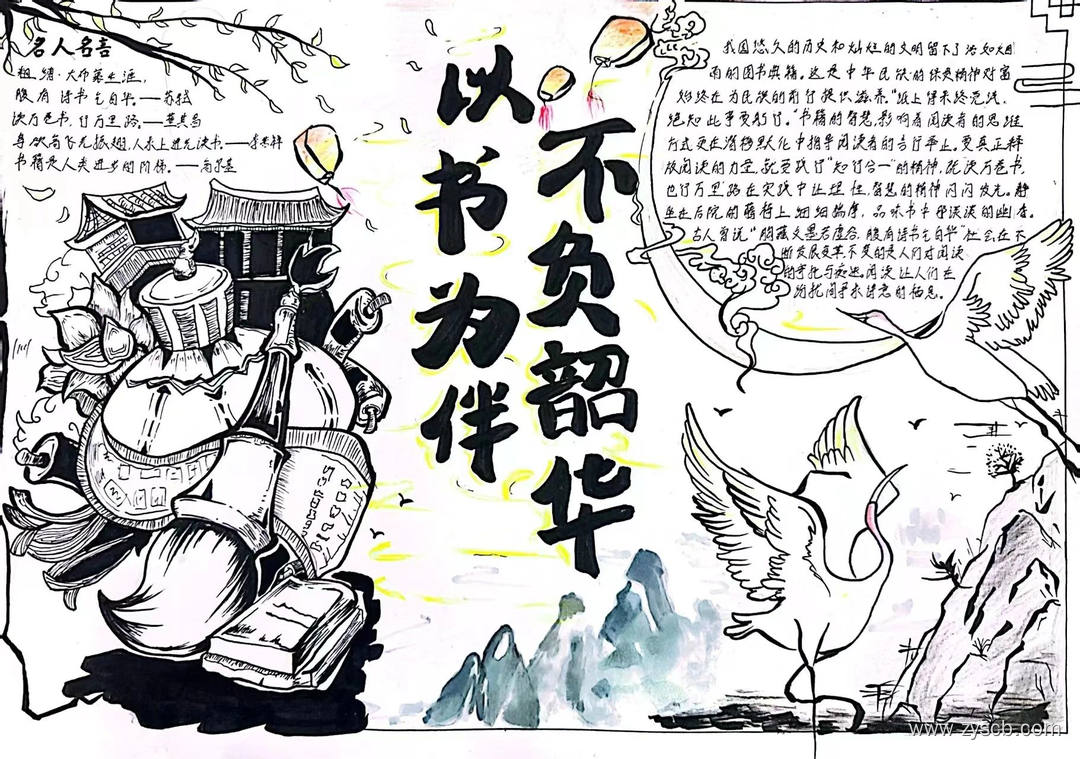 名人名言
粗缯大布裹生涯，
腹有诗书气自华。——苏轼
读万卷书，行万里路。——董其昌
鸟欲高飞先振翅，人求上进先读书。——李苦禅
书籍是人类进步的阶梯。——高尔基
以书为伴
不负韶华
我国悠久的历史和灿烂的文明留下了浩如烟
雨的图书典籍。这是中华民族的保贵精神财富
始终在为民族的前行提供滋养。"纸上得来终觉浅，
绝知此事要躬行。"书籍的智慧，影响着阅读者的思维
方式更在潜移默化中指导阅读者的言行举止。要真正释
放阅读的力量，就要践行"知行合一"的精神，既读万卷书，
也行万里路在实践中让理性、智慧的精神闪闪发光。静
坐在后院的藤椅上细细揣摩，品味书中那淡淡的幽香。
古人曾说"胸藏文墨若虚谷，腹有诗书气自华"社会在不
断发展变革，不变的是人们对阅读
的寄托与痴迷。阅读，让人们在
的忙闲争取诗意的栖息。
www.zyscb.com